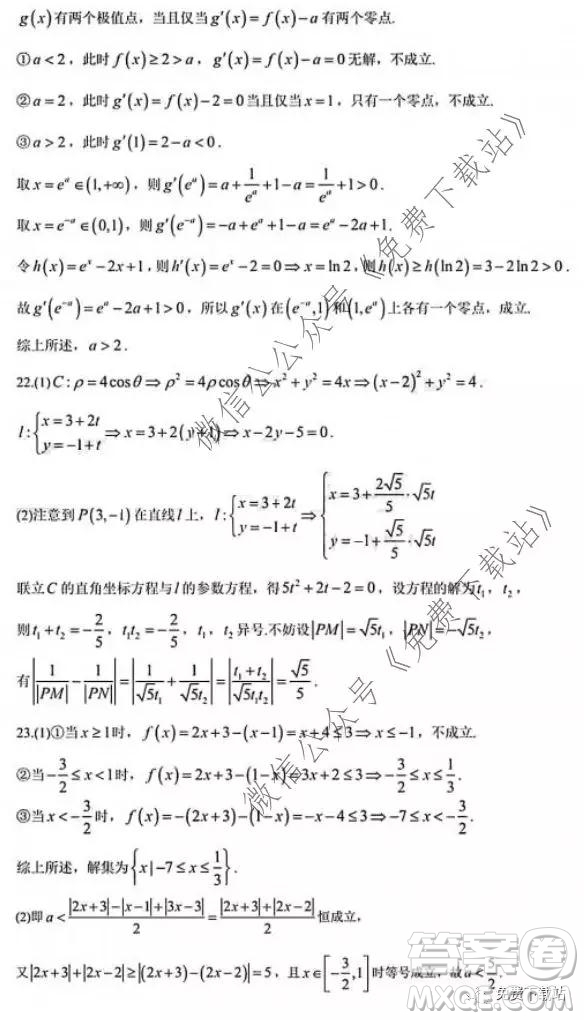 g(x)有两个极值点，当且仅当g′(x)=f(x)−a有两个零点.
①a<2，此时f(x)≥2>a，g′(x)=f(x)−a=0无解，不成立.
②a=2，此时g′(x)=f(x)−2=0当且仅当x=1，只有一个零点，不成立.
③a>2，此时g′(1)=2−a<0.
取x=eᵃ∈(1,+∞)，则g′(eᵃ)=a+1/eᵃ+1−a=1/eᵃ+1>0.
取x=e⁻ᵃ∈(0,1)，则g′(e⁻ᵃ)=−a+eᵃ+1−a=eᵃ−2a+1.
令h(x)=eˣ−2x+1,则h′(x)=eˣ−2=0⇒x=ln2,则h(x)≥h(ln2)=3−2ln2>0.
故g′(e⁻ᵃ)=eᵃ−2a+1>0，所以g′(x)在(e⁻ᵃ,1)和(1,eᵃ)上各有一个零点，成立.
综上所述，a>2.
22.(1)C:ρ=4cosθ⇒ρ²=4ρcosθ⇒x²+y²=4x⇒(x−2)²+y²=4.
l:{x=3+2t, y=−1+t⇒x=3+2(y+1)⇒x−2y−5=0.
(2)注意到P(3,−1)在直线l上，l:{x=3+2t, y=−1+t⇒{x=3+2√5/5·√5t, y=−1+√5/5·√5t
联立C的直角坐标方程与l的参数方程，得5t²+2t−2=0，设方程的解为t₁，t₂，
则t₁+t₂=−2/5，t₁t₂=−2/5，t₁，t₂异号.不妨设|PM|=√5t₁，|PN|=−√5t₂，
有|1/|PM|−1/|PN||=|1/(√5t₁)+1/(√5t₂)|=|(t₁+t₂)/(√5t₁t₂)|=√5/5.
23.(1)①当x≥1时，f(x)=2x+3−(x−1)=x+4≤3⇒x≤−1，不成立.
②当−3/2≤x<1时，f(x)=2x+3−(1−x)=3x+2≤3⇒−3/2≤x≤1/3.
③当x<−3/2时，f(x)=−(2x+3)−(1−x)=−x−4≤3⇒−7≤x<−3/2.
综上所述，解集为{x|−7≤x≤1/3}.
(2)即a<(|2x+3|−|x−1|+|3x−3|)/2=(|2x+3|+|2x−2|)/2恒成立，
又|2x+3|+|2x−2|≥|(2x+3)−(2x−2)|=5，且x∈[−3/2,1]时等号成立，故a<5/2.
微信公众号《免费下载站》
微信公众号《免费下载站》
答案圈
MXQE.COM
免费下载站